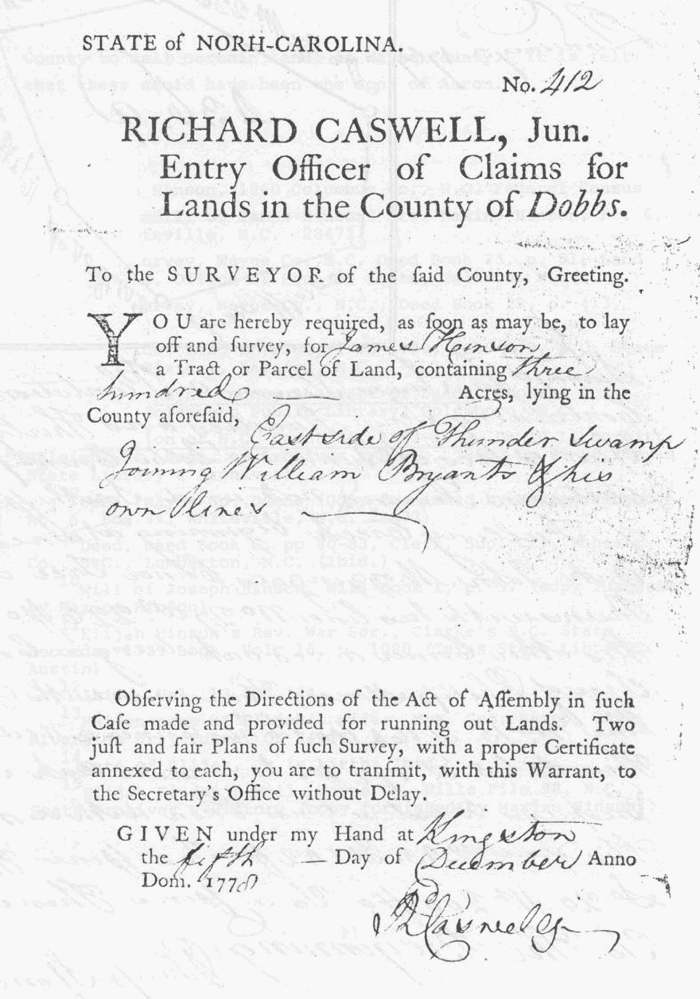 STATE of NORH-CAROLINA.
No. 412
RICHARD CASWELL, Jun.
Entry Officer of Claims for
Lands in the County of Dobbs.
To the SURVEYOR of the said County, Greeting.
YOU are hereby required, as soon as may be, to lay
off and survey, for James Hinson
a Tract or Parcel of Land, containing three
hundred Acres, lying in the
County aforesaid, East side of Thunder Swamp
Joining William Bryants & his
own lines
Obſerving the Directions of the Act of Aſſembly in ſuch
Caſe made and provided for running out Lands. Two
juſt and fair Plans of ſuch Survey, with a proper Certificate
annexed to each, you are to tranſmit, with this Warrant, to
the Secretary's Office without Delay.
GIVEN under my Hand at Kingston
the fifth Day of December Anno
Dom. 1778
Rd Caswell